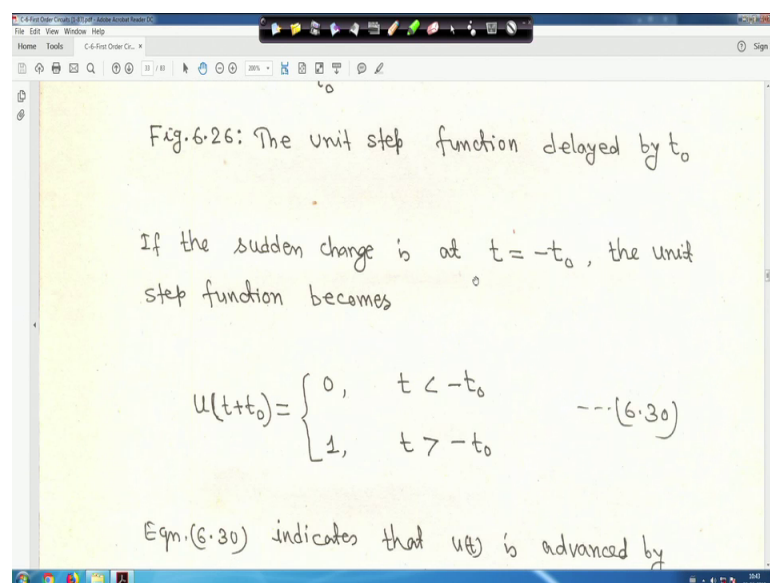 C-6-First Order Circuits (1-83).pdf - Adobe Acrobat Reader DC
File Edit View Window Help
Home Tools C-6-First Order Cir... × Sign
33 / 83 200%
t₀
Fig.6.26: The unit step function delayed by t₀
If the sudden change is at t = -t₀, the unit
step function becomes
u(t+t₀) = { 0, t < -t₀
1, t > -t₀ ---(6.30)
Eqn.(6.30) indicates that u(t) is advanced by
10:43